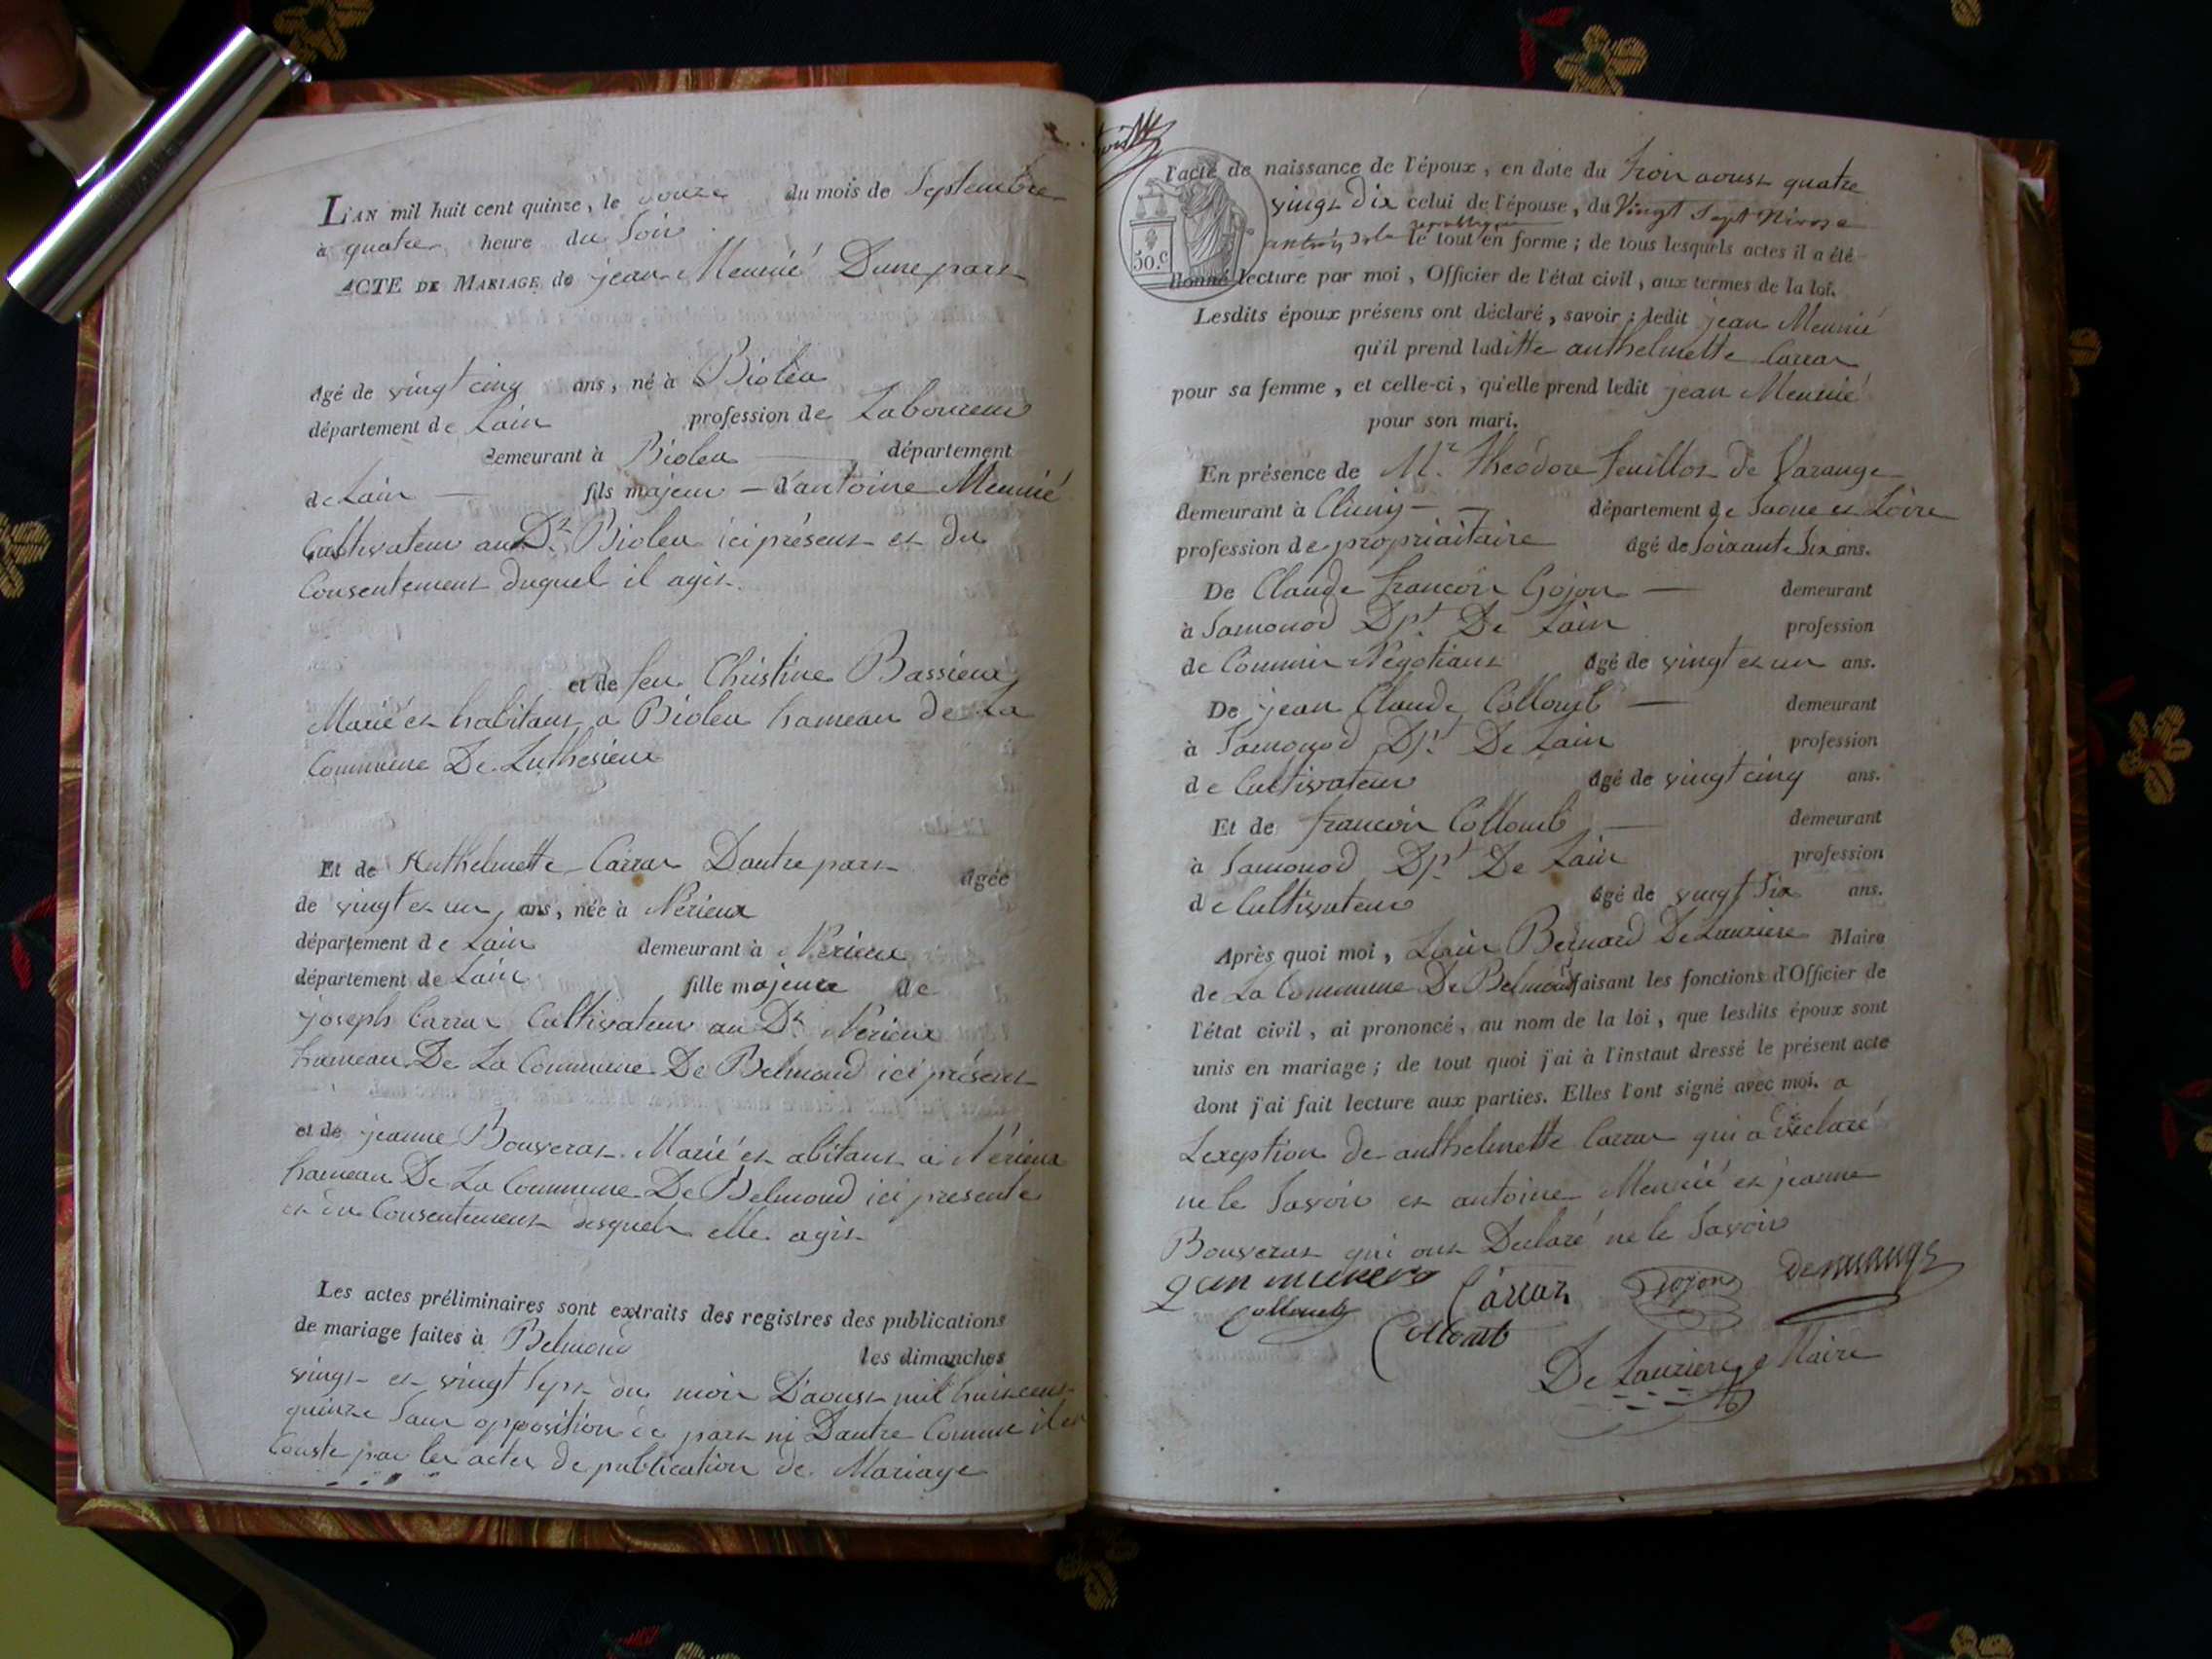 L'AN mil huit cent quinze, le douze du mois de Septembre
à quatre heure du Soir
ACTE DE MARIAGE de jean Meunié Dune part
âgé de vingt cinq ans, né à Bioléa
département de Lain profession de Laboureur
demeurant à Bioléa département
de Lain fils majeur d'antoine Meunié
Cultivateur au Dt Bioléa ici présent et du
Consentement duquel il agit
et de feu Christine Bassieux
Marié et habitant a Bioléa hameau de La
Commune De Luthésieux
Et de Anthelmette Carrar Dautre part âgée
de vingt et un ans, née à Nérieux
département de Lain demeurant à Nérieux
département de Lain fille majeure de
joseph Carrar Cultivateur au Dt Nérieux
hameau De La Commune De Belmond ici présent
et de jeanne Bouverat Marié et abitant a Nérieux
hameau De La Commune De Belmond ici presente
et du Consentement desquels elle agit
Les actes préliminaires sont extraits des registres des publications
de mariage faites à Belmond les dimanches
vingt et vingt Sept du mois D'aoust mil huit cent
quinze Sans opposition de part ni Dautre Comme il en
Conste par les actes de publication de Mariage
l'acte de naissance de l'époux, en date du trois aoust quatre
vingt Dix celui de l'épouse, du Vingt Sept Nivose
an trois de la république le tout en forme ; de tous lesquels actes il a été
donné lecture par moi, Officier de l'état civil, aux termes de la loi.
50.c
Lesdits époux présens ont déclaré, savoir : ledit jean Meunié
qu'il prend laditte anthelmette Carrar
pour sa femme, et celle-ci, qu'elle prend ledit jean Meunié
pour son mari.
En présence de Mr. Theodore feuillot de Varange
demeurant à Cluny département de Saone et Loire
profession de propriaitaire âgé de Soixante Six ans.
De Claude francois Gojon demeurant
à Samonod Dpt. De Lain profession
de Commis Négotiant âgé de vingt et un ans.
De jean Claude Colloub demeurant
à Samonod Dpt. De Lain profession
de Cultivateur âgé de vingt cinq ans.
Et de francois Collomb demeurant
à Samonod Dpt De Lain profession
de Cultivateur âgé de vingt Six ans.
Après quoi moi, Louis Bernard De Lauriere Maire
de La Commune De Belmond faisant les fonctions d'Officier de
l'état civil, ai prononcé, au nom de la loi, que lesdits époux sont
unis en mariage ; de tout quoi j'ai à l'instant dressé le présent acte
dont j'ai fait lecture aux parties. Elles l'ont signé avec moi. a
Lexeption de anthelmette Carrar qui a declaré
ne le Savoir et antoine Meunié et jeanne
Bouverat qui ont Declaré ne le Savoir
Carrar Gojon
Collomb
Collomb
De Lauriere Maire